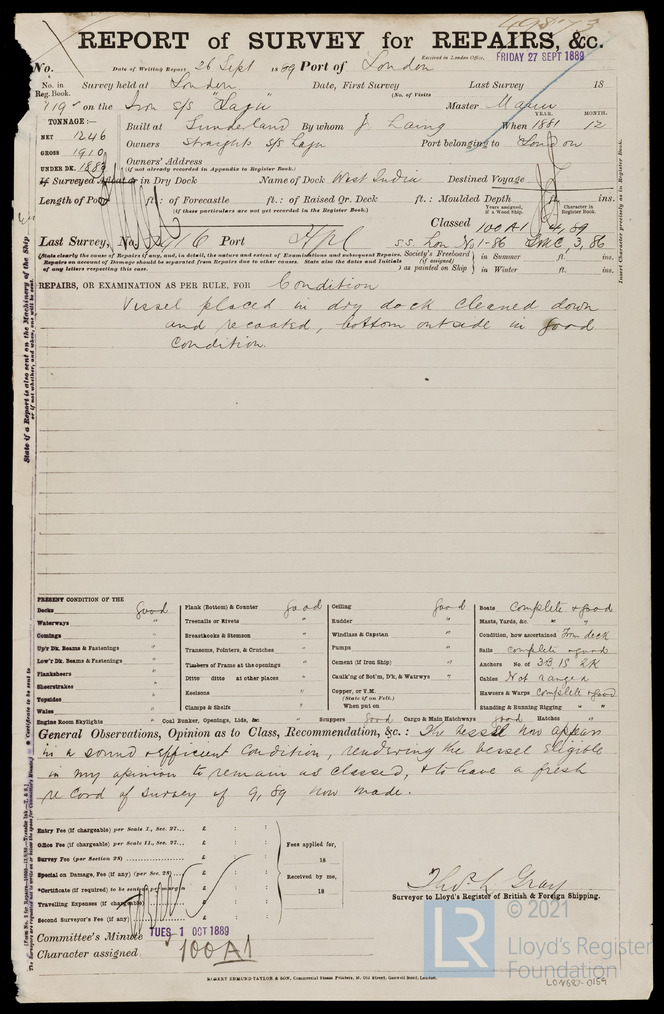 REPORT of SURVEY for REPAIRS, &c.
Received in London Office, FRIDAY 27 SEPT 1889
No. Date of Writing Report 26 Sept 1889 Port of London
No. in Reg. Book. Survey held at London Date, First Survey Last Survey 18
(No. of Visits
on the Iron S/S "Laju" Master
TONNAGE:—
NET 1246
GROSS 1910
UNDER DK. 1883
YEAR. MONTH.
Built at Sunderland By whom J. Laing When 1881 12
Owners Straights S/S Laju Port belonging to London
Owners' Address
(if not already recorded in Appendix to Register Book.)
If Surveyed Afloat or in Dry Dock Name of Dock West India Destined Voyage
Length of Poop ft.: of Forecastle ft.: of Raised Qr. Deck ft.: Moulded Depth ft. ins.
(if these particulars are not yet recorded in the Register Book.)
Years assigned, if a Wood Ship. Character in Register Book.
Classed 100 A1 4,89
Last Survey, No. Port S.S. Lon No 1-86 LMC, 3,86
(State clearly the cause of Repairs, if any, and, in detail, the nature and extent of Examinations and subsequent Repairs.
Repairs on account of Damage should be separated from Repairs due to other causes. State also the dates and Initials
of any letters respecting this case.
Society's Freeboard (if assigned) as painted on Ship in Summer ft. ins.
in Winter ft. ins.
REPAIRS, OR EXAMINATION AS PER RULE, FOR Condition
Vessel placed in dry dock cleaned down
and recoated, bottom outside in good
condition.
PRESENT CONDITION OF THE
Decks good
Waterways "
Comings "
Up'r Dk. Beams & Fastenings "
Low'r Dk. Beams & Fastenings "
Planksheers "
Sheerstrakes "
Topsides "
Wales "
Engine Room Skylights "
Plank (Bottom) & Counter good
Treenails or Rivets "
Breasthooks & Stemson "
Transoms, Pointers, & Crutches "
Timbers of Frame at the openings "
Ditto ditto at other places "
Keelsons "
Clamps & Shelfs "
Coal Bunker, Openings, Lids, &c. "
Ceiling good
Rudder "
Windlass & Capstan "
Pumps "
Cement (if Iron Ship) "
Caulk'ng of Bot'm, D'k, & Watrwys "
Copper, or Y.M.
(State if on Felt.)
When put on
Scuppers good Cargo & Main Hatchways good Hatches "
Boats complete & good
Masts, Yards, &c. " "
Condition, how ascertained From deck
Sails complete & good
Anchors No. of 3B 1S 2K
Cables Not ranged
Hawsers & Warps complete & good
Standing & Running Rigging " "
General Observations, Opinion as to Class, Recommendation, &c.: The vessel now appears
in a sound & efficient condition, rendering the vessel eligible
in my opinion to remain as classed, & to have a fresh
record of survey of 9,89 now made.
Entry Fee (if chargeable) per Scale I., Sec. 27... £ : :
Office Fee (if chargeable) per Scale II., Sec. 27... £ : :
Survey Fee (per Section 28) £ : :
Special on Damage, Fee (if any) (per Sec. 28) £ : :
*Certificate (if required) to be sent as per margin £ : :
Travelling Expenses (if chargeable) £ : :
Second Surveyor's Fee (if any) £ : :
Fees applied for,
18
Received by me,
18
Thos. L Gray
Surveyor to Lloyd's Register of British & Foreign Shipping.
Committee's Minute TUES 1 OCT 1889
Character assigned 100A1
ROBERT EDMUND TAYLOR & SON, Commercial Steam Printers, 19, Old Street, Goswell Road, London.
State if a Report is also sent on the Machinery of the Ship
or if not whether, and when, one will be sent.
* Certificate to be sent to
Insert Character precisely as in Register Book.
© 2021
LR
Lloyd's Register
Foundation
LON682-0159